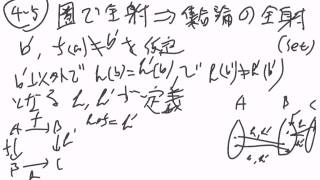 4-5 圏で全射⇒集論の全射
b', f(a)≠b'を仮定 (Set)
b'以外でh(b)=h'(b)、でh(b')≠h'(b')
となるh, h'を定義
A B C
A f B
h∘f=h'
f h'
B h C
h,h'
h,h'